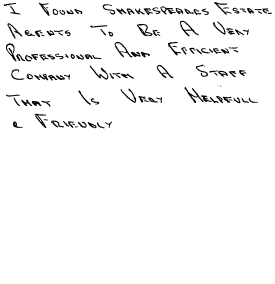 I FOUND SHAKESPEARES ESTATE
AGENTS TO BE A VERY
PROFESSIONAL AND EFFICIENT
COMPANY WITH A STAFF
THAT IS VERY HELPFULL
& FRIENDLY